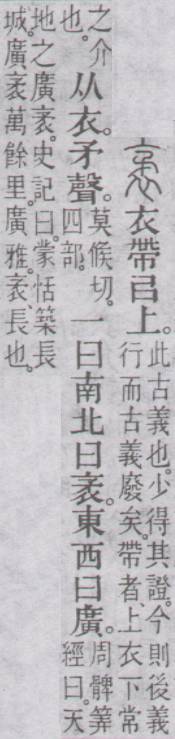 袤衣帶㠯上。此古義也。少得其證。今則後義行而古義廢矣。帶者、上衣下常
之介也。从衣。矛聲。莫候切。四部。一曰南北曰袤。東西曰廣。周髀筭經曰。天
地之廣袤。史記曰。蒙恬築長城。廣袤萬餘里。廣雅。袤、長也。